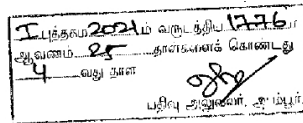 I புத்தகம் 2021 ம் வருடத்திய 1776
ஆவணம் 25 தாள்களைக் கொண்டது
4 வது தாள்
பதிவு அலுவலர், ஆம்பூர்.